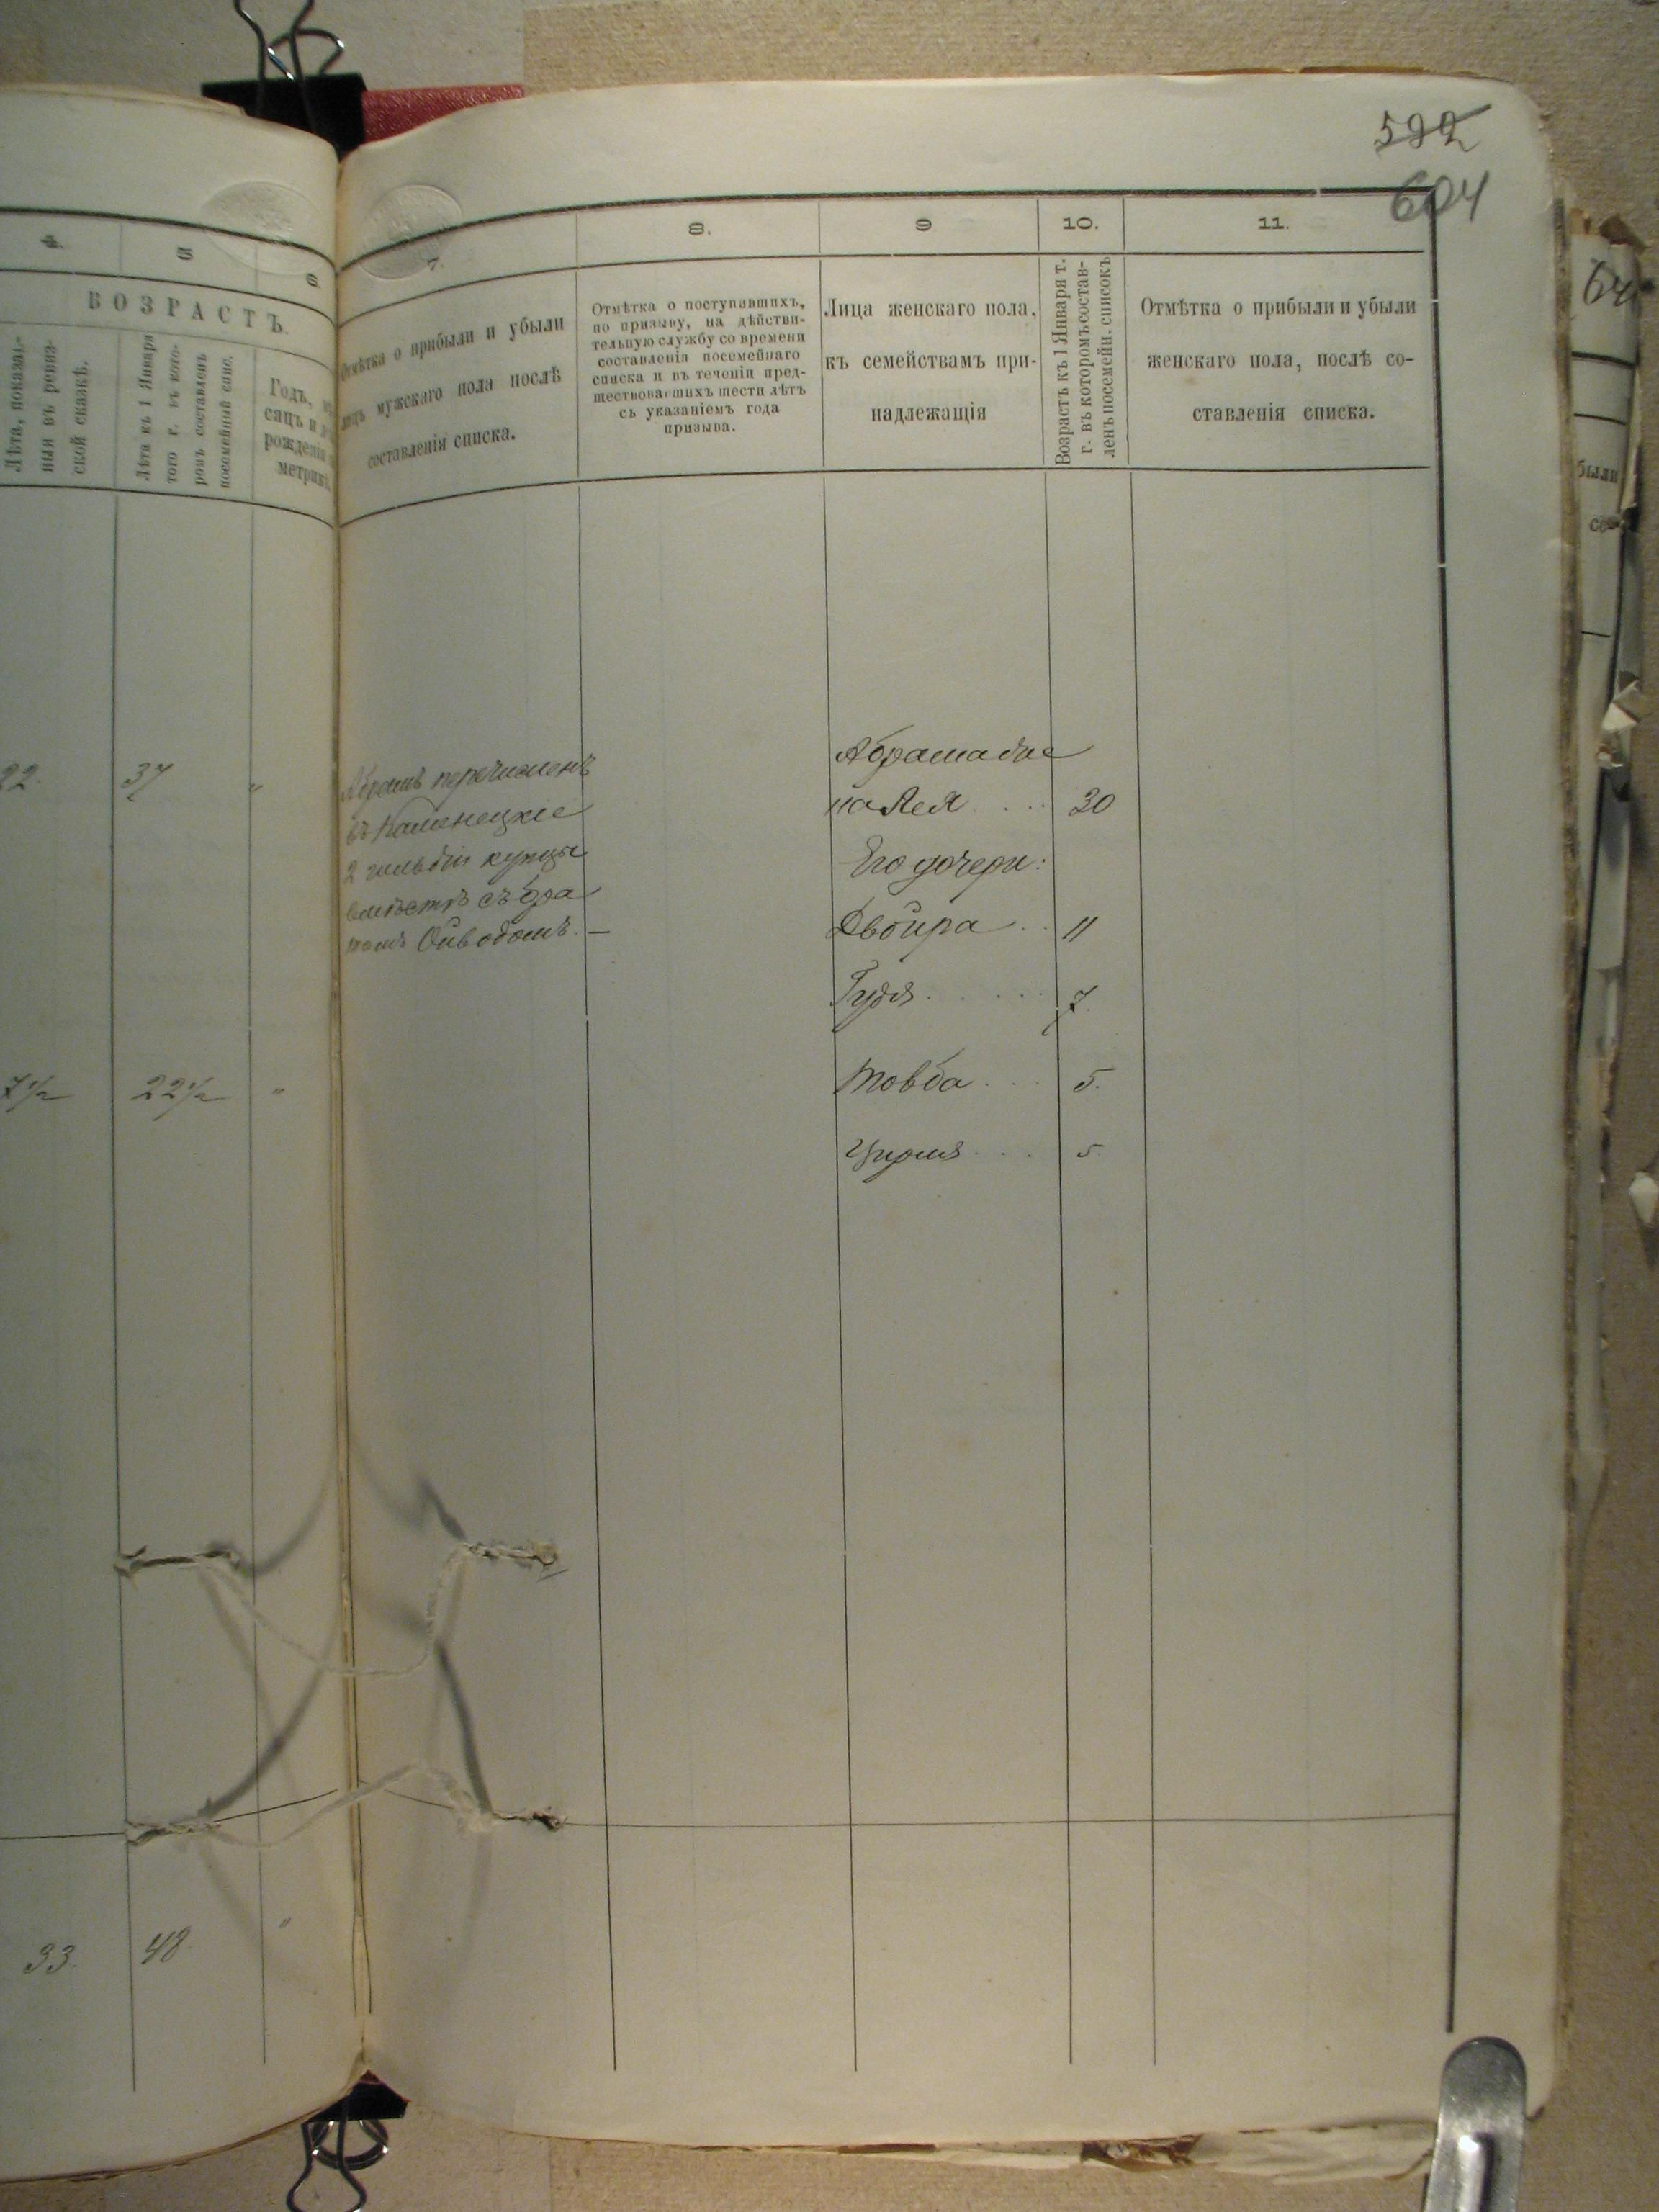 592
604
4.
5
6.
ВОЗРАСТЪ.
Лѣта, показан-
ныя въ ревиз-
ской сказкѣ.
Лѣта къ 1 Января
того г. въ кото-
ромъ составленъ
посемейный спис.
Годъ, мѣ-
сяцъ и д
рожденія
метрик
22.
37
"
7½
22½
"
33.
48
"
7.
8.
9
10.
11.
Отмѣтка о прибыли и убыли
лицъ мужскаго пола послѣ
составленія списка.
Отмѣтка о поступавшихъ,
по призыву, на дѣйстви-
тельную службу со времени
составленія посемейнаго
списка и въ теченіи пред-
шествовавшихъ шести лѣтъ
съ указаніемъ года
призыва.
Лица женскаго пола,
къ семействамъ при-
надлежащія
Возрастъ къ 1 Января т.
г. въ которомъ состав-
ленъ посемейн. списокъ
Отмѣтка о прибыли и убыли
женскаго пола, послѣ со-
ставленія списка.
Абрамъ перечисленъ
въ Каменецкіе
2 гильдіи купцы
вмѣстѣ съ бра
томъ Ойводомъ. —
Абрама жена
Лея 30
Его дочери:
Двойра 11
Гудя 7
Товба 5.
Ципра 5.
были